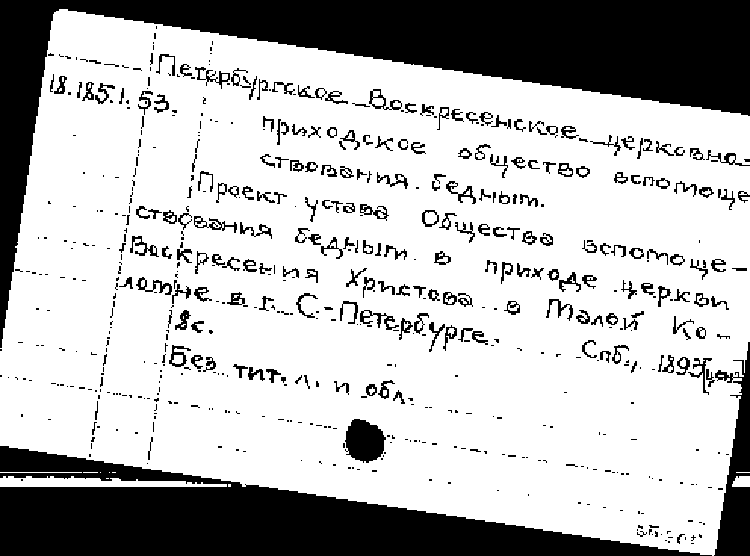 Петербургское Воскресенское церковно-
18.185.1.53.
приходское общество вспомоще
ствования бедным.
Проект устава Общества вспомоще-
ствования бедным в приходе церкви
Воскресения Христова в Малой Ко-
ломне в г. С.-Петербурге. Спб., 1893
8с.
Без тит. л. и обл.